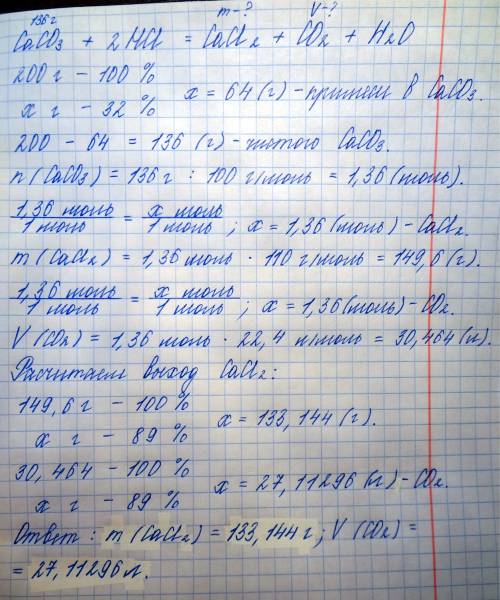 136 г m-? V-?
CaCO₃ + 2HCl = CaCl₂ + CO₂ + H₂O
200 г - 100 %
x г - 32 % x = 64 (г) - примеси в CaCO₃.
200 - 64 = 136 (г) - чистого CaCO₃.
n (CaCO₃) = 136 г : 100 г/моль = 1,36 (моль).
1,36 моль / 1 моль = x моль / 1 моль ; x = 1,36 (моль) - CaCl₂.
m (CaCl₂) = 1,36 моль · 110 г/моль = 149,6 (г).
1,36 моль / 1 моль = x моль / 1 моль ; x = 1,36 (моль) - CO₂.
V (CO₂) = 1,36 моль · 22,4 л/моль = 30,464 (л).
Расчитаем выход CaCl₂:
149,6 г - 100 %
x г - 89 % x = 133,144 (г).
30,464 - 100 %
x г - 89 % x = 27,11296 (г) - CO₂.
Ответ : m (CaCl₂) = 133,144 г ; V (CO₂) =
= 27,11296 л.